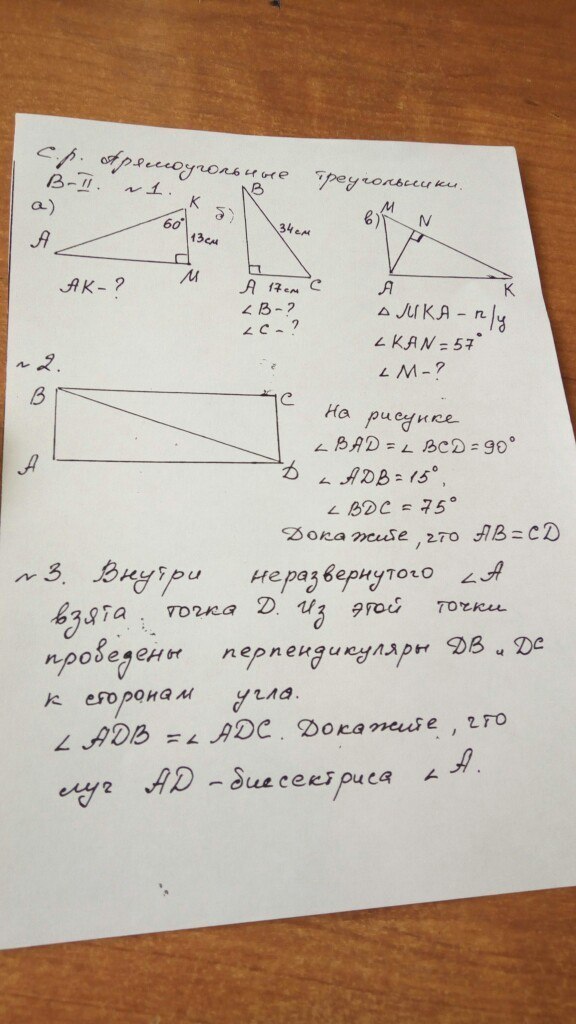 С.р. Прямоугольные треугольники.
В-II. №1.
а)
A
K
60°
13см
M
AK-?
б)
B
34см
A 17см C
∠B-?
∠C-?
в)
M
N
A
K
△ MKA - п/у
∠KAN=57°
∠M-?
№2.
B
C
A
D
На рисунке
∠BAD=∠BCD=90°
∠ADB=15°,
∠BDC=75°
Докажите, что AB=CD
№3. Внутри неразвернутого ∠A
взята точка D. Из этой точки
проведены перпендикуляры DB и DC
к сторонам угла.
∠ADB=∠ADC. Докажите, что
луч AD - биссектриса ∠A.